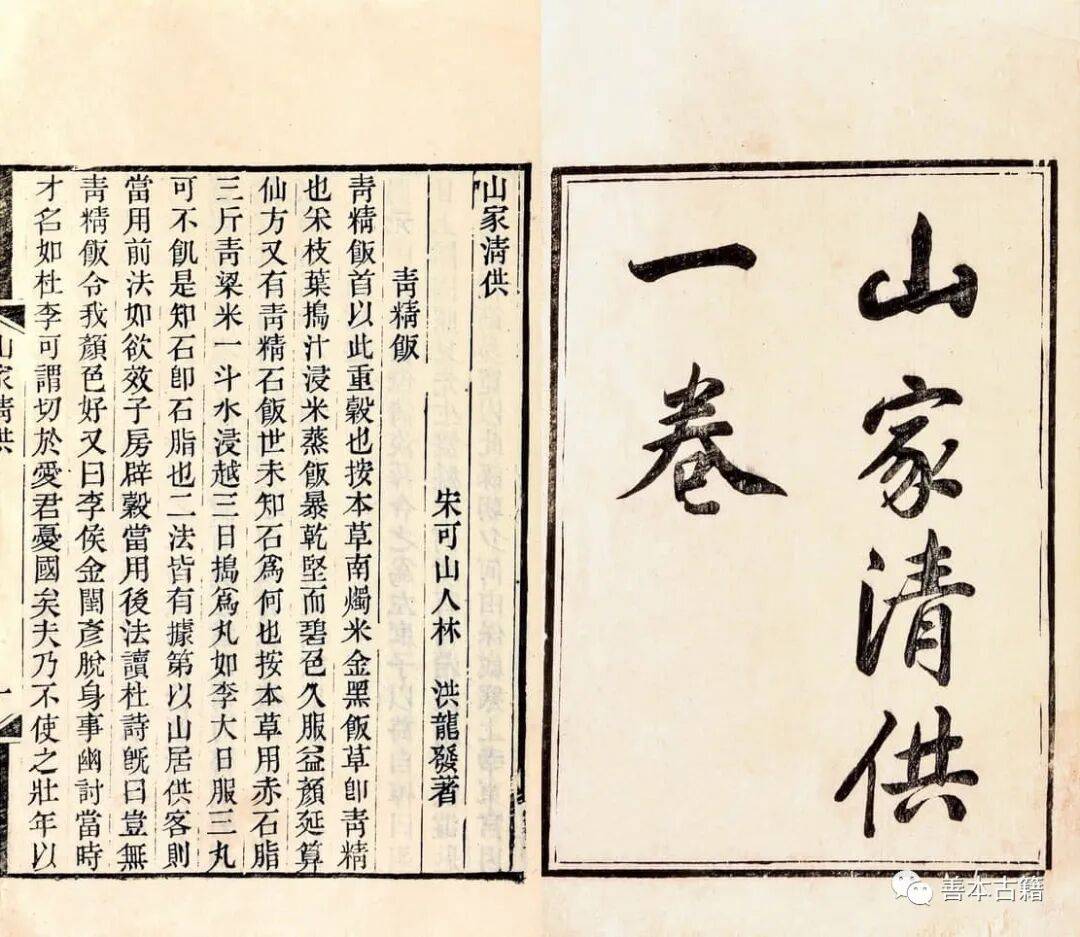 山家清供
一卷
山家淸供
宋可山人林 洪龍發著
靑精飯
靑精飯首以此重穀也按本草南燭米金黑飯草卽靑精
也采枝葉搗汁浸米蒸飯暴乾堅而碧色久服益顏延算
仙方又有靑精石飯世未知石爲何也按本草用赤石脂
三斤靑粱米一斗水浸越三日搗爲丸如李大日服三丸
可不飢是知石卽石脂也二法皆有據第以山居供客則
當用前法如欲效子房辟穀當用後法讀杜詩旣曰豈無
靑精飯令我顏色好又曰李侯金閨彥脫身事幽討當時
才名如杜李可謂切於愛君憂國矣夫乃不使之壯年以
山家淸供
一
善本古籍